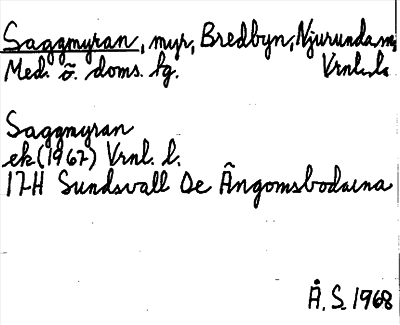 Saggmyran, myr, Bredbyn, Njurunda sn,
Med. ö. doms. hg. Vrnl. l.
Saggmyran
ek (1967) Vrnl. l.
17H Sundsvall Se Ångomsbodarna
Å. S. 1968